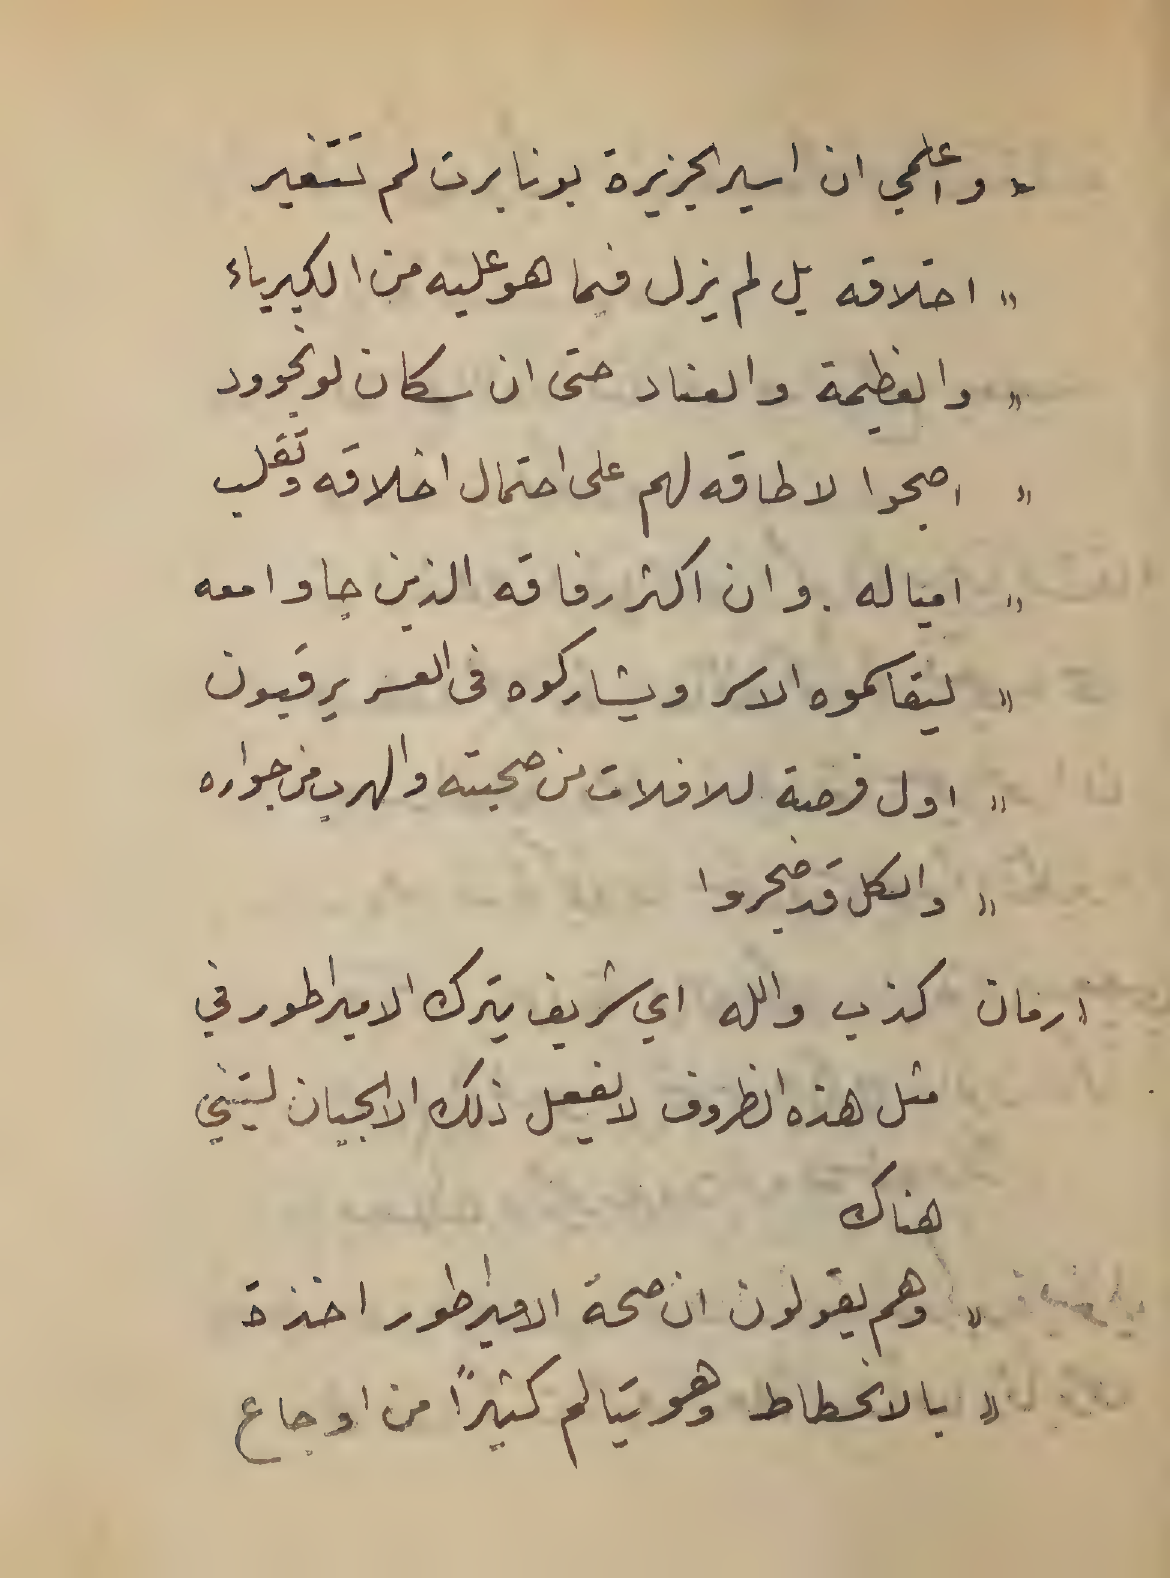 « واعلمي ان اسير الجزيرة بونابرت لم تتغير
« اخلاقه بل لم يزل فيما هو عليه من الكبرياء
« والعظيمة والعناد حتى ان سكان لونجوود
« اصبحوا لا طاقه لهم على احتمال اخلاقه وتقلب
« امياله . وان اكثر رفاقه الذين جاوا معه
« ليتقاسموه الاسر ويشاركوه فى العسر يرقبون
« اول فرصة للافلات من صحبته والهرب من جواره
« والكل قد ضجروا
ارمان كذب والله اي شريف يترك الامبراطور في
مثل هذه الظروف لا يفعل ذلك الا الجبان ليتني
هناك
« وهم يقولون ان صحة الامبراطور اخذة
« بالانحطاط وهو يتالم كثيرًا من اوجاع